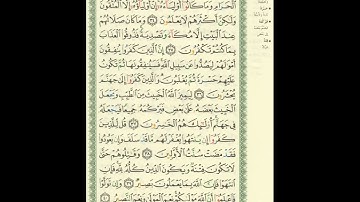 الْحَرَامِ وَمَا كَانُوا أَوْلِيَاءَهُ إِنْ أَوْلِيَاؤُهُ إِلَّا الْمُتَّقُونَ
وَلَٰكِنَّ أَكْثَرَهُمْ لَا يَعْلَمُونَ ٣٤ وَمَا كَانَ صَلَاتُهُمْ
عِندَ الْبَيْتِ إِلَّا مُكَاءً وَتَصْدِيَةً فَذُوقُوا الْعَذَابَ
بِمَا كُنتُمْ تَكْفُرُونَ ٣٥ إِنَّ الَّذِينَ كَفَرُوا يُنفِقُونَ
أَمْوَالَهُمْ لِيَصُدُّوا عَن سَبِيلِ اللَّهِ فَسَيُنفِقُونَهَا ثُمَّ تَكُونُ
عَلَيْهِمْ حَسْرَةً ثُمَّ يُغْلَبُونَ وَالَّذِينَ كَفَرُوا إِلَىٰ جَهَنَّمَ
يُحْشَرُونَ ٣٦ لِيَمِيزَ اللَّهُ الْخَبِيثَ مِنَ الطَّيِّبِ وَيَجْعَلَ
الْخَبِيثَ بَعْضَهُ عَلَىٰ بَعْضٍ فَيَرْكُمَهُ جَمِيعًا فَيَجْعَلَهُ
فِي جَهَنَّمَ أُولَٰئِكَ هُمُ الْخَاسِرُونَ ٣٧ قُل لِّلَّذِينَ
كَفَرُوا إِن يَنتَهُوا يُغْفَرْ لَهُم مَّا قَدْ سَلَفَ وَإِن يَعُودُوا
فَقَدْ مَضَتْ سُنَّتُ الْأَوَّلِينَ ٣٨ وَقَاتِلُوهُمْ حَتَّىٰ
لَا تَكُونَ فِتْنَةٌ وَيَكُونَ الدِّينُ كُلُّهُ لِلَّهِ فَإِنِ
انتَهَوْا فَإِنَّ اللَّهَ بِمَا يَعْمَلُونَ بَصِيرٌ ٣٩ وَإِن تَوَلَّوْا
فَاعْلَمُوا أَنَّ اللَّهَ مَوْلَاكُمْ نِعْمَ الْمَوْلَىٰ وَنِعْمَ النَّصِيرُ ٤٠